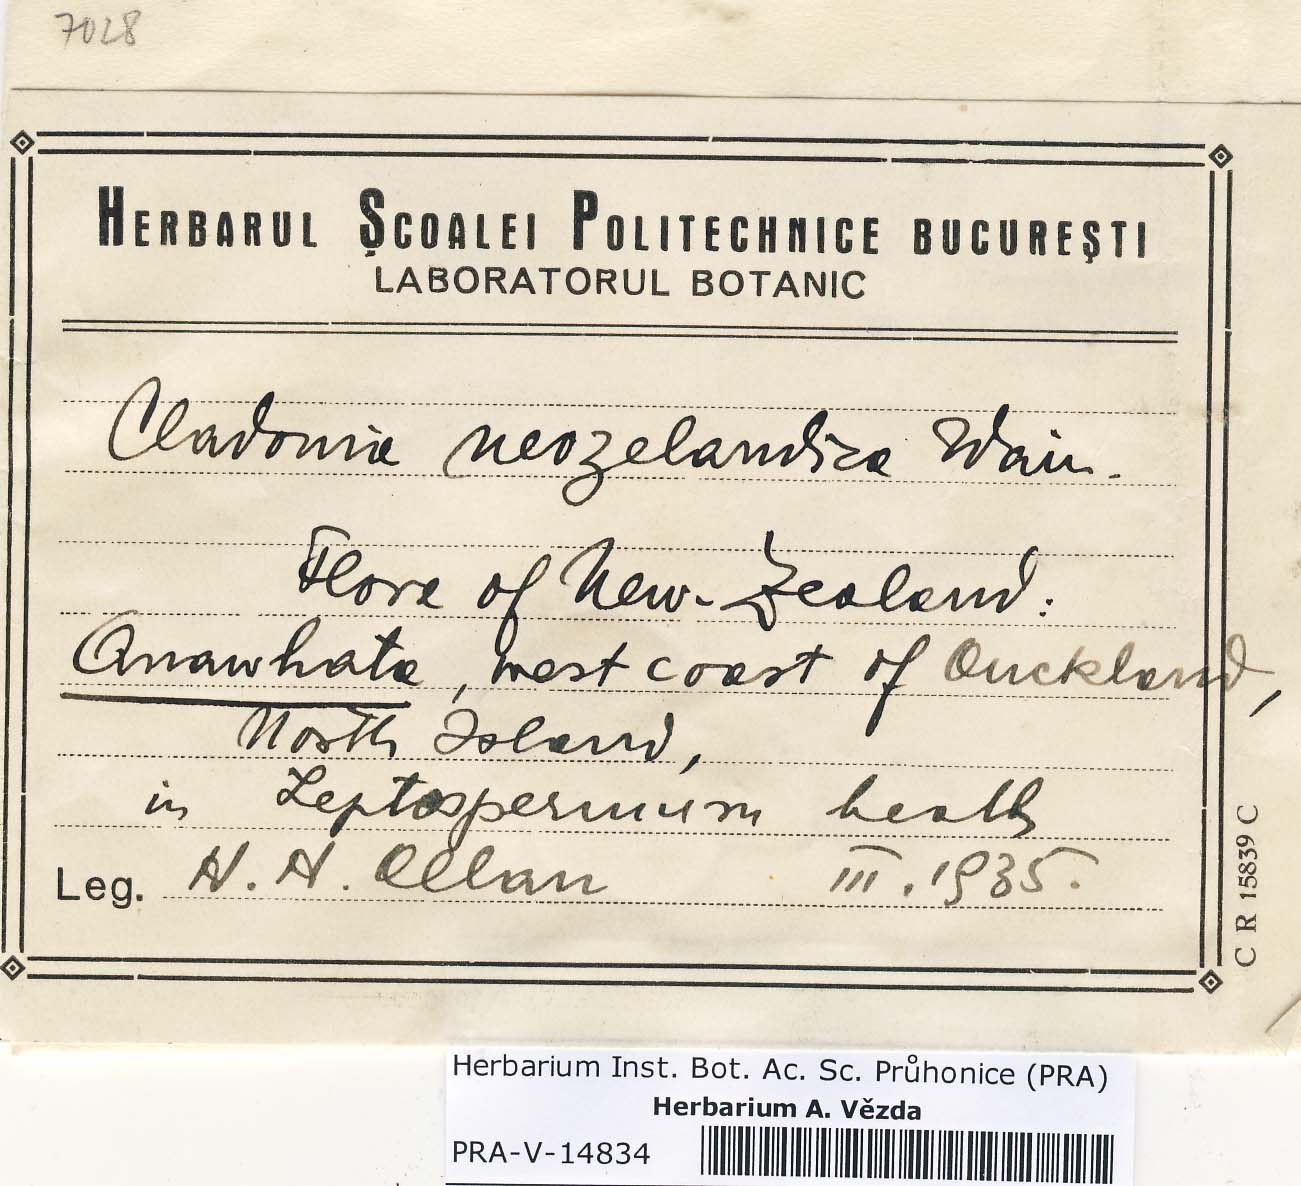 7028
HERBARUL ȘCOALEI POLITECHNICE BUCUREȘTI
LABORATORUL BOTANIC
Cladonia neozelandica Wain.
Flora of New-Zealand:
Anawhata, west coast of Auckland,
North Island,
in Leptospermum heath
Leg. H. H. Allan III. 1935.
C R 15839 C
Herbarium Inst. Bot. Ac. Sc. Průhonice (PRA)
Herbarium A. Vězda
PRA-V-14834